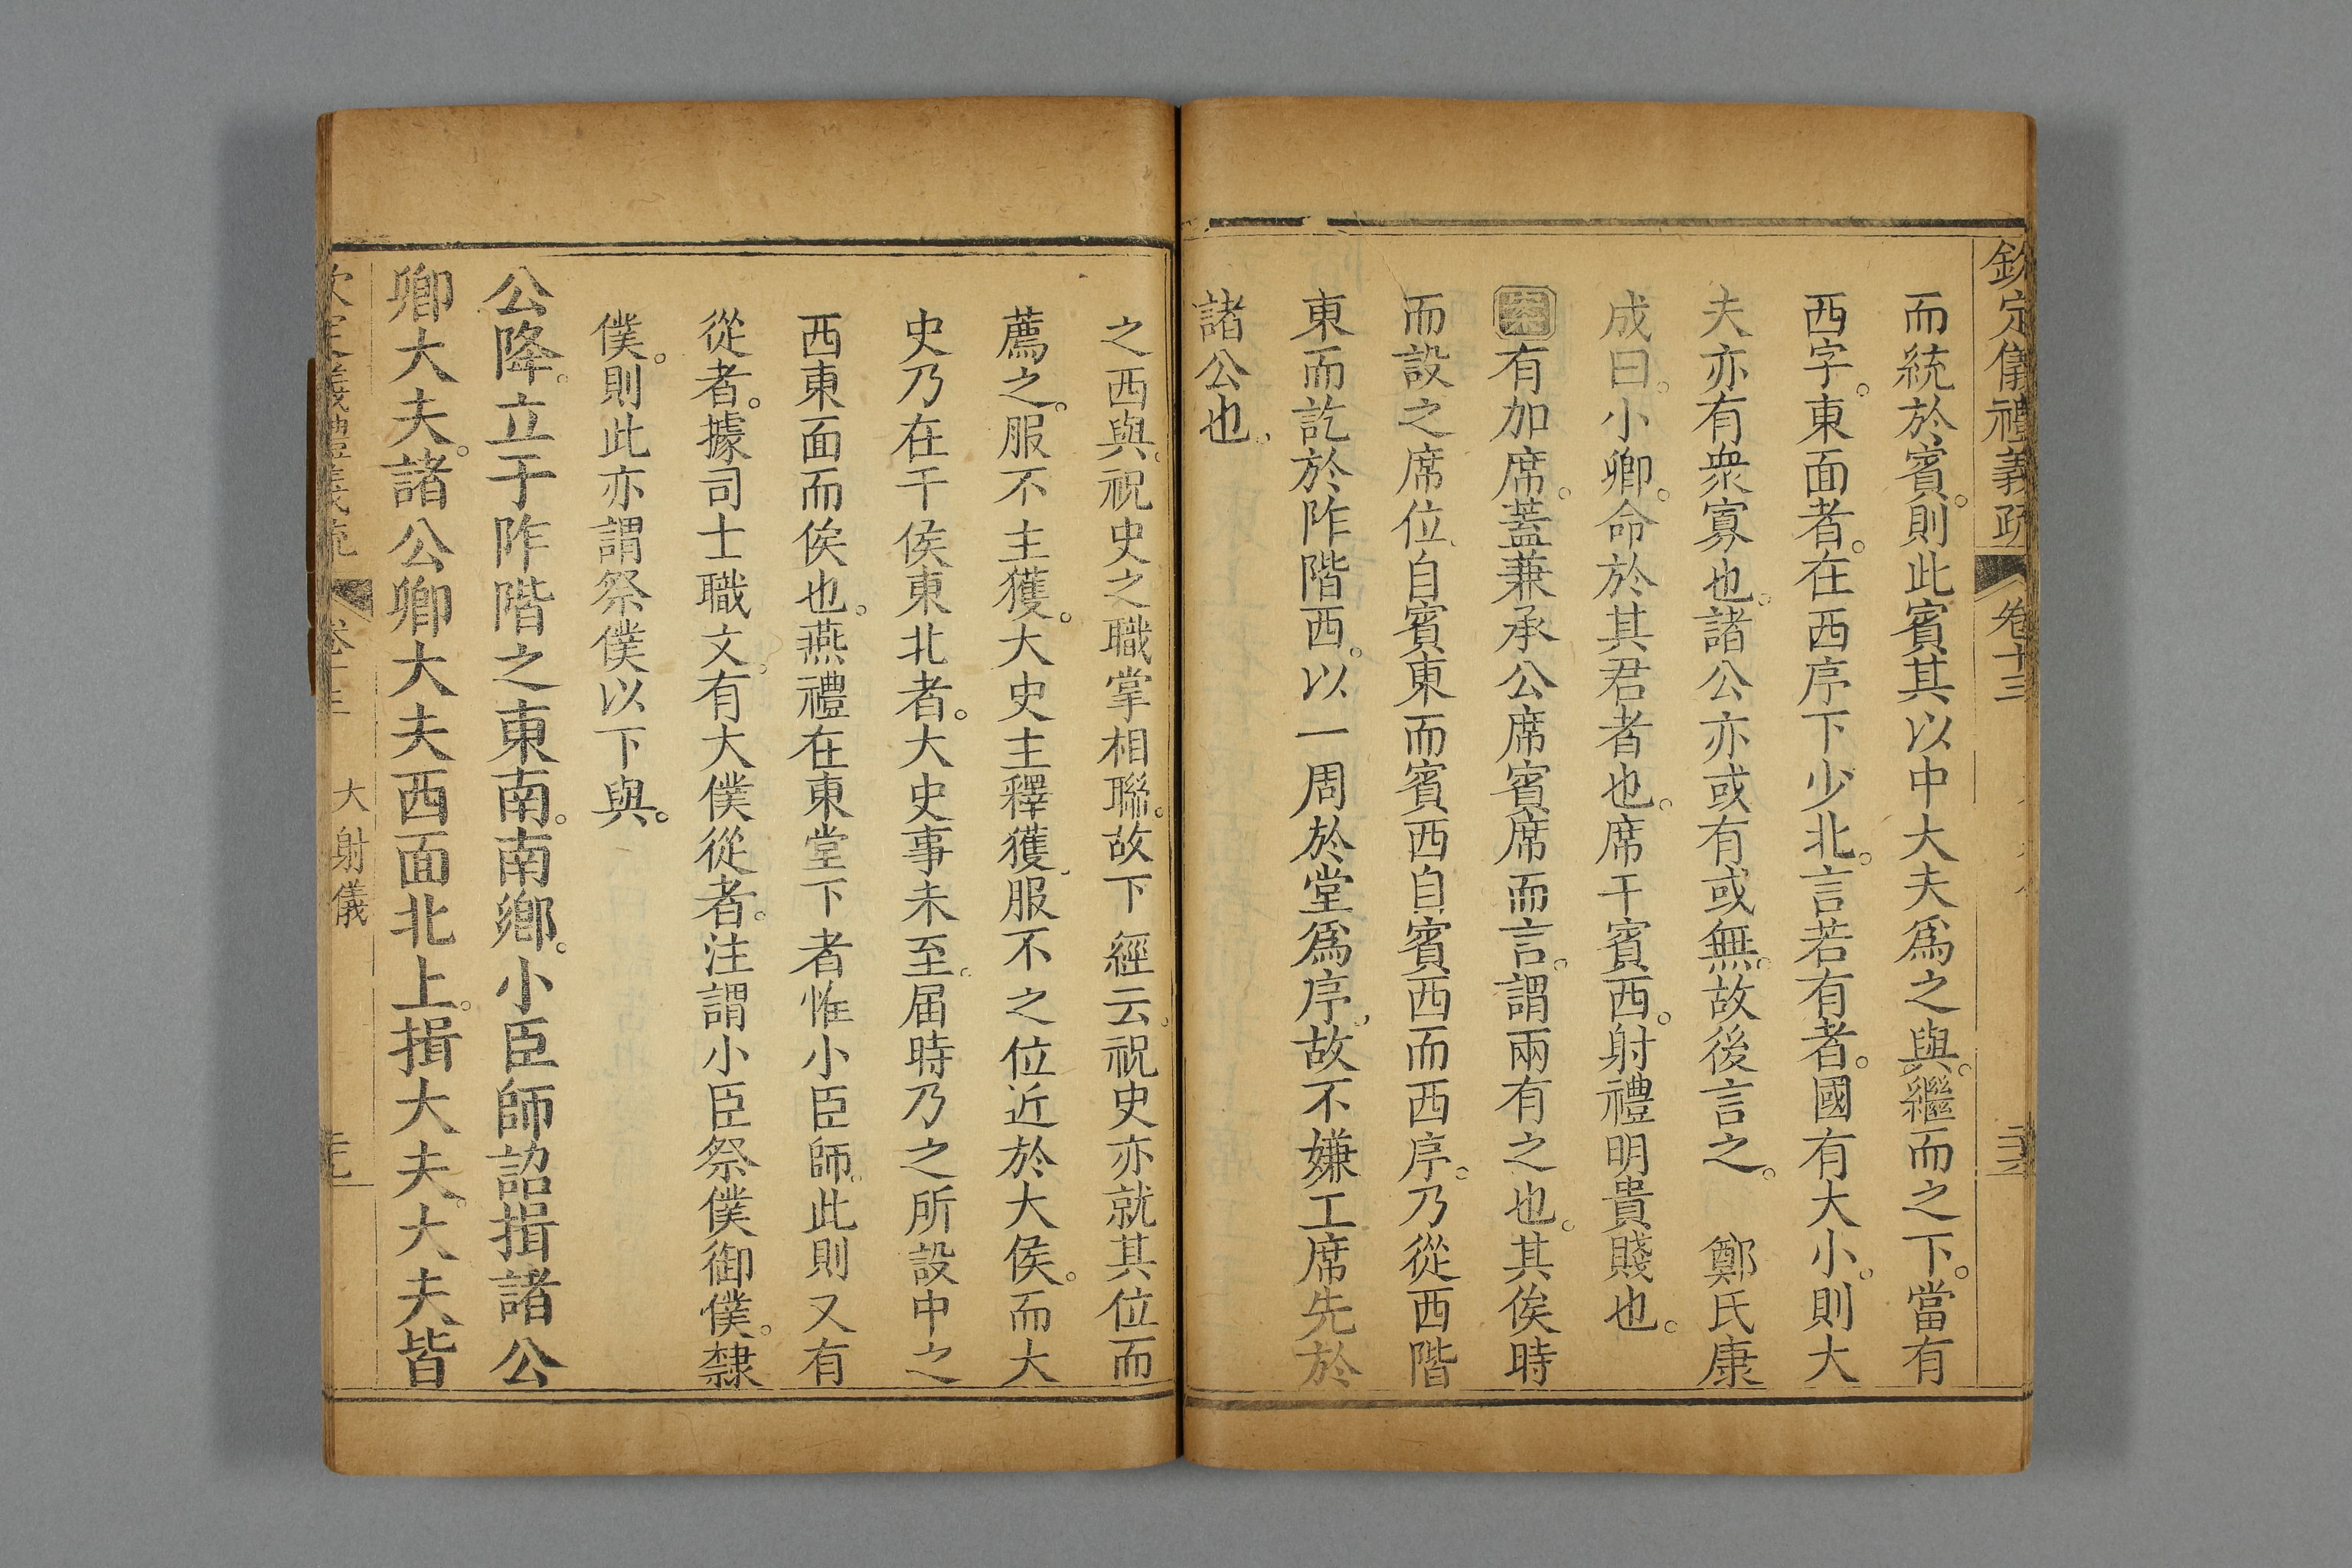 欽定儀禮義疏 卷十三
而統於賓。則此賓其以中大夫爲之與。繼而之下。當有
西字。東面者。在西序下少北。言若有者。國有大小。則大
夫亦有衆寡也。諸公亦或有或無。故後言之。 鄭氏康
成曰。小卿。命於其君者也。席于賓西。射禮明貴賤也。
案有加席。蓋兼承公席賓席而言。謂兩有之也。其俟時
而設之席位、自賓東而賓西自賓西而西序。乃從西階
東而訖於阼階西。以一周於堂爲序、故不嫌工席先於
諸公也。
之西與。祝史之職掌相聯。故下經云。祝史亦就其位而
薦之。服不主獲。大史主釋獲、服不之位近於大侯。而大
史乃在干侯東北者。大史事未至。届時乃之所設中之
西東面而俟也。燕禮在東堂下者惟小臣師。此則又有
從者。據司士職文。有大僕從者。注謂小臣祭僕御僕。隸
僕。則此亦謂祭僕以下與。
公降。立于阼階之東南。南鄉。小臣師詔揖諸公
卿大夫。諸公卿大夫西面北上。揖大夫。大夫皆
大射儀